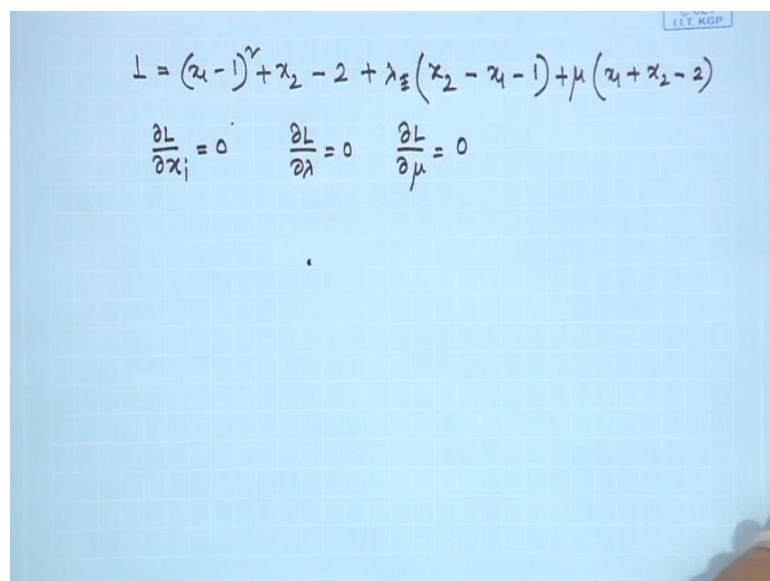 I.I.T. KGP
L = (x₁ - 1)² + x₂ - 2 + λ (x₂ - x₁ - 1) + μ (x₁ + x₂ - 2)
∂L/∂xⱼ = 0 ∂L/∂λ = 0 ∂L/∂μ = 0